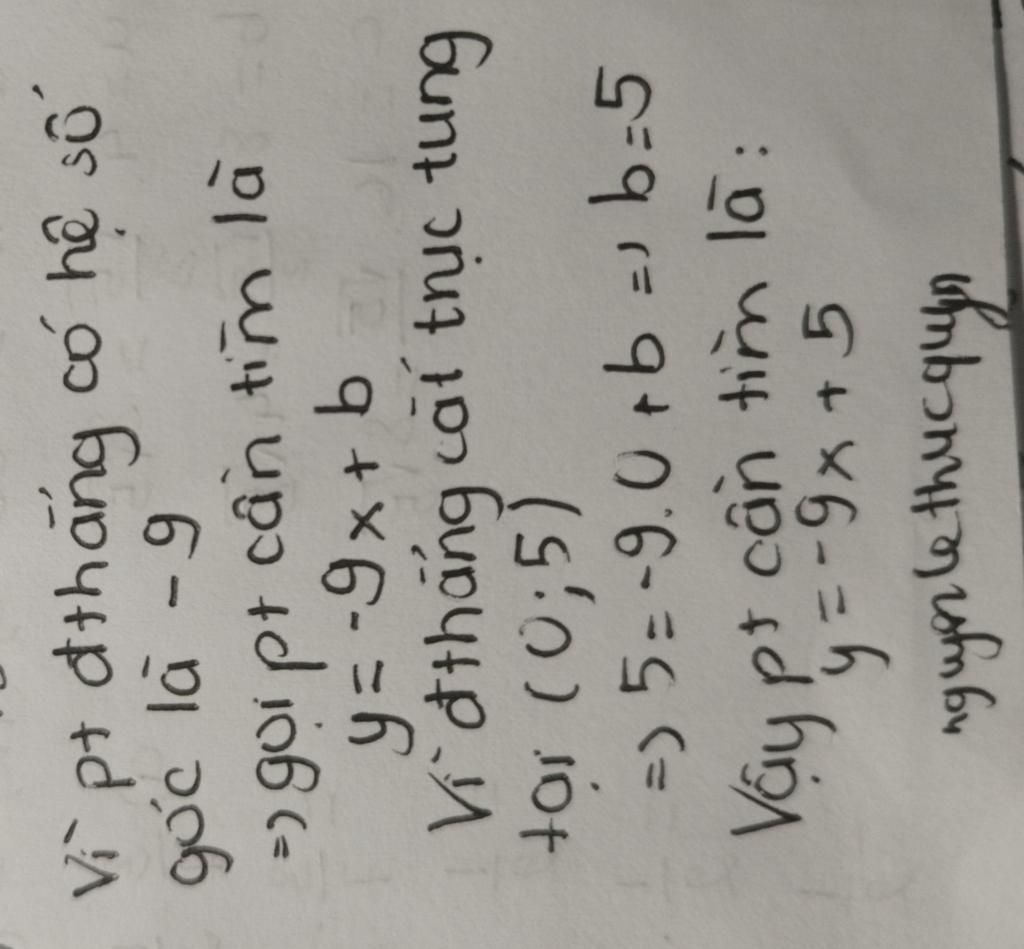 Vì pt đthẳng có hệ số
góc là -9
=> gọi pt cần tìm là
y = -9x + b
Vì đthẳng cắt trục tung
tại (0;5)
=> 5 = -9.0 + b => b = 5
Vậy pt cần tìm là:
y = -9x + 5
nguynlethucquyn